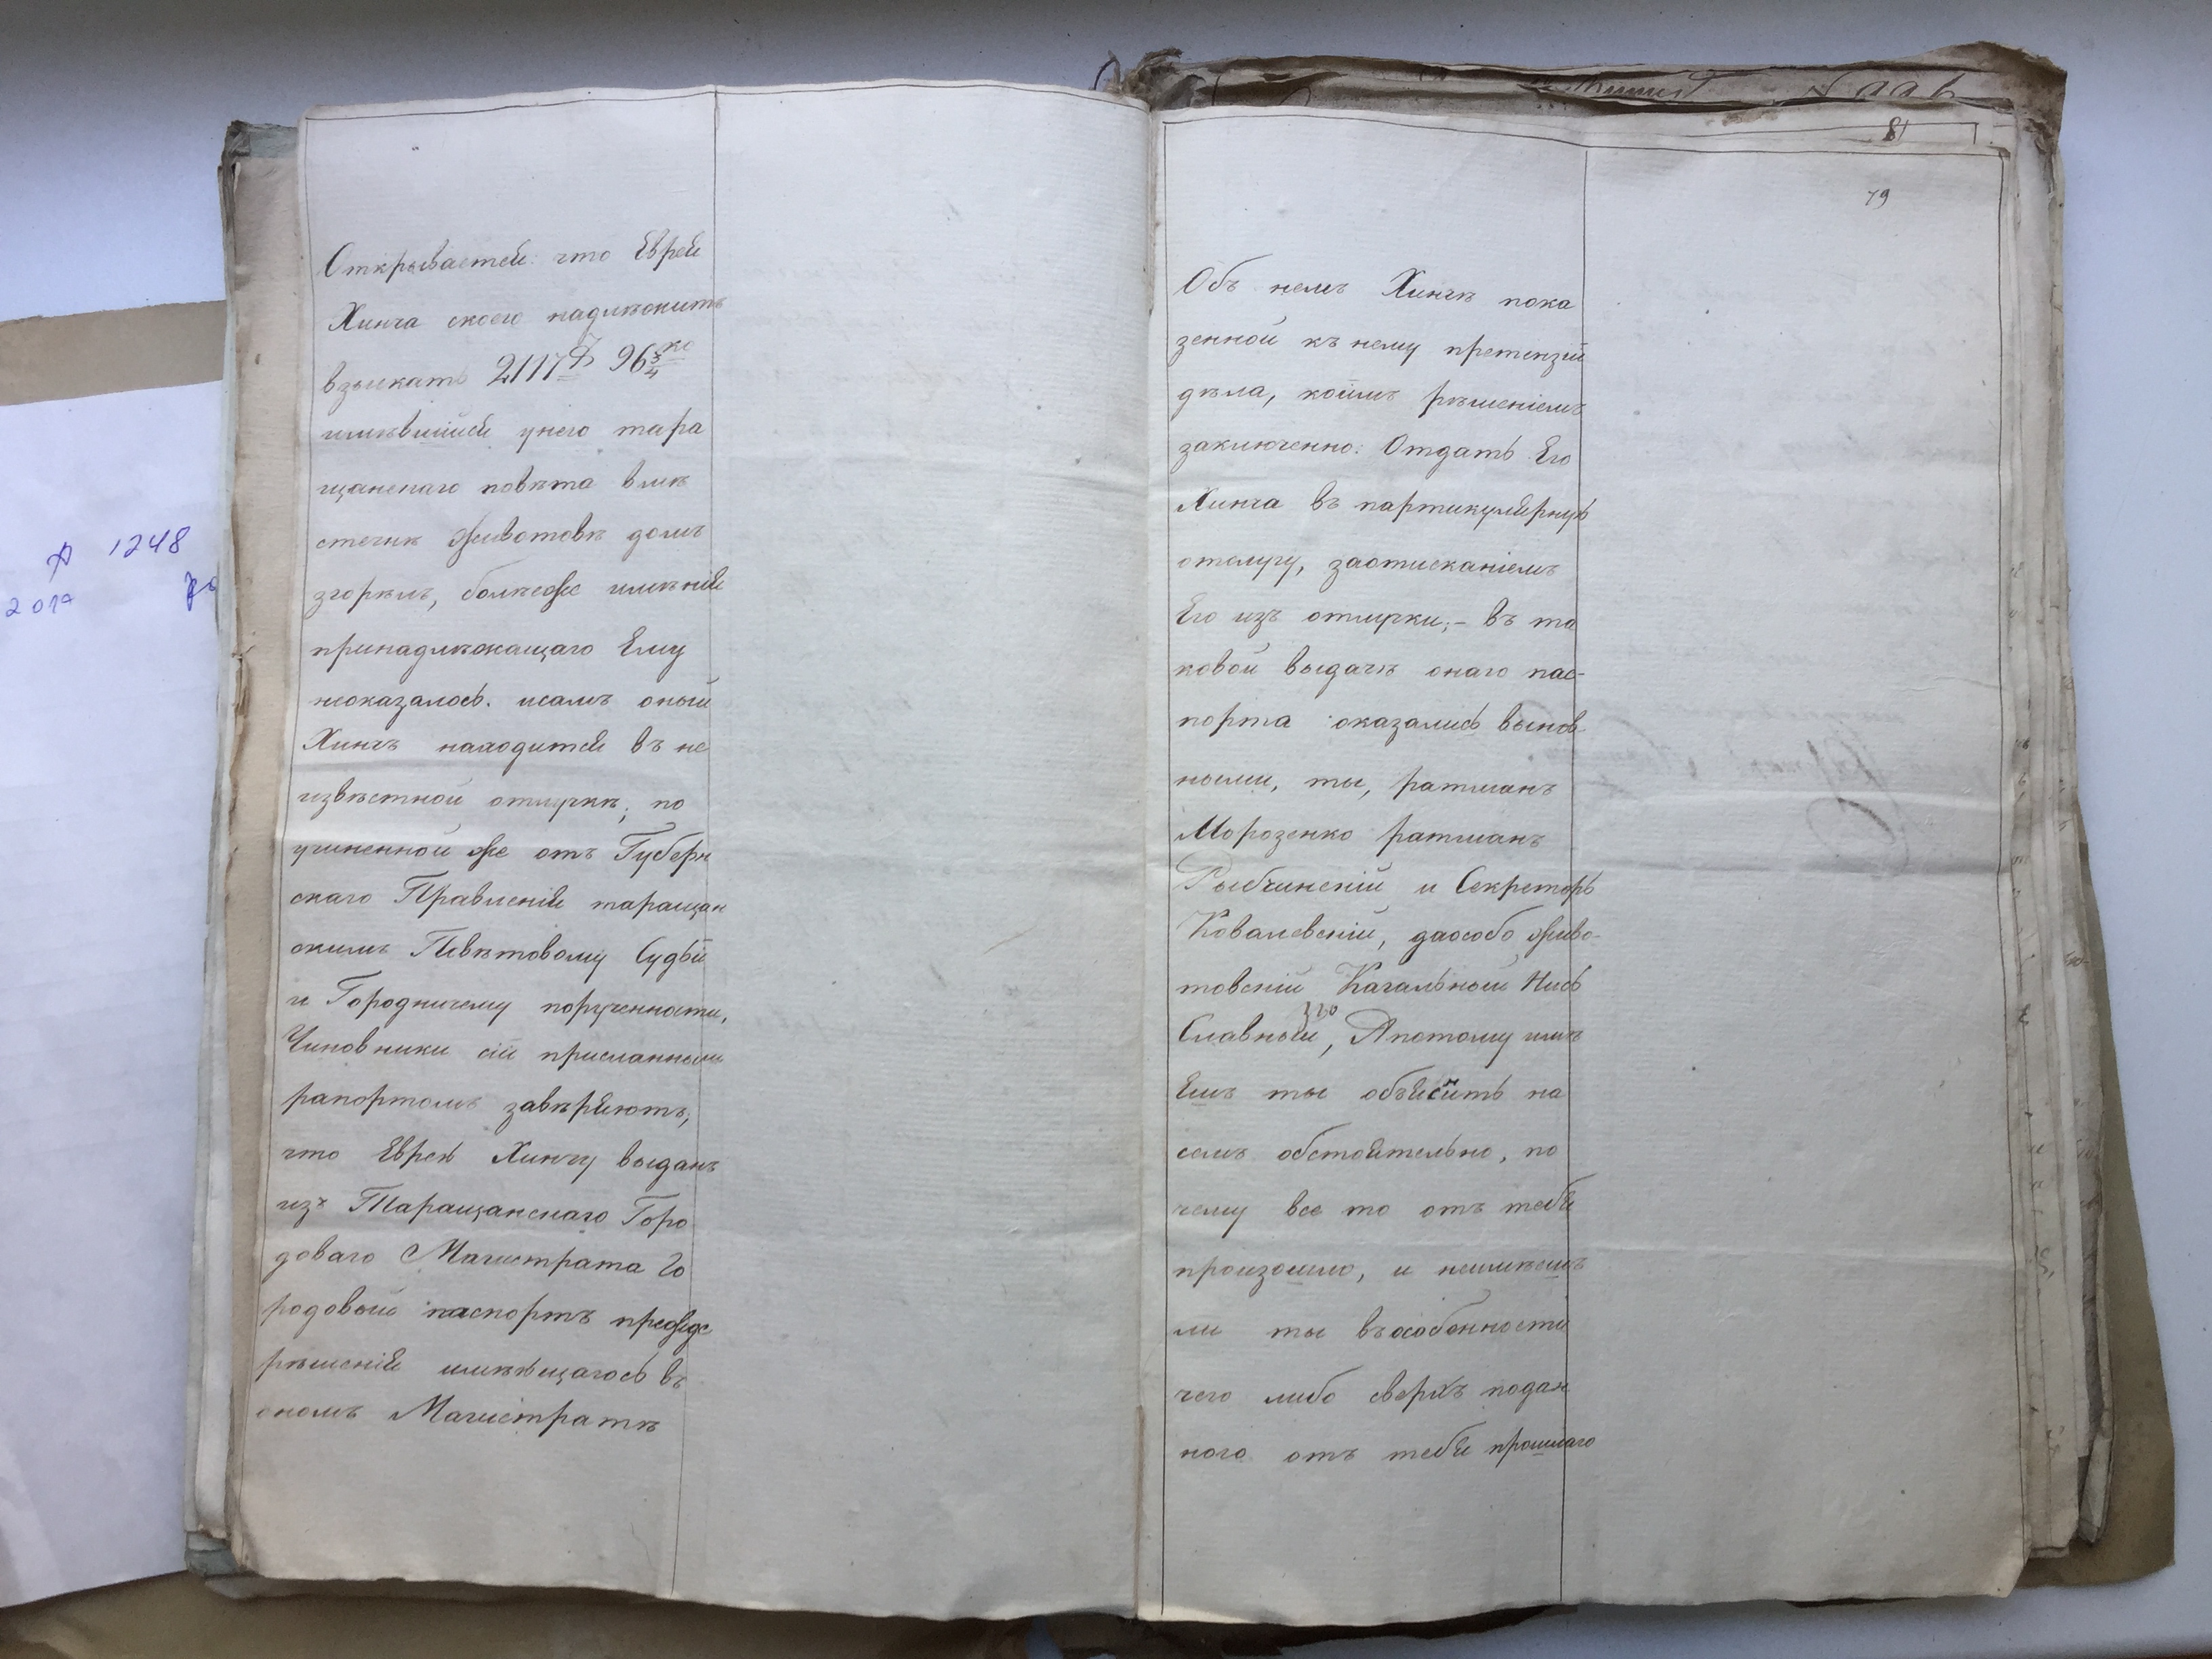 Открывается: что Еврей
Хинча скоего надлѣжитъ
взыскать 2117 р 96¾ ко
имѣвшийся унего тара
щанскаго повѣта вмѣ
стечкѣ Животовѣ домъ
згорѣлъ, болѣеже имѣнія
принадлѣжащаго Ему
неоказалось. исамъ оный
Хинчъ находится въ не
извѣстной отлучкѣ; по
учиненной же отъ Губерн
скаго Правленія таращан
скимъ Повѣтовому Судьи
и Городничему порученности,
Чиновники сіи присланнымъ
рапортомъ завѣряютъ,
что Еврею Хинчу выданъ
изъ Таращанскаго Горо
доваго Магистрата Го
родовый паспортъ прежде
рѣшенія имѣющагось въ
ономъ Магистратѣ
8
79
Объ немъ Хинчѣ пока
зенной къ нему претензіи
дѣла, коимъ рѣшеніемъ
заключенно: Отдать Его
Хинча въ партикулярную
отслугу, заотисканіемъ
Его изъ отлучки; - въ та
ковой выдачѣ онаго пас-
порта оказались вынов
ными, ты, ратманъ
Морозенко ратманъ
Рыбчинскій и Секреторь
Ковалевскій, даособо Живо-
товскій Кагальный Нись
Славный, Апотому имѣ
Ешъ ты объяснить на
семъ обстоятельно, по
чему все то отъ тебя
произошло, и неимѣешъ
ли ты въособенности
чего либо сверхъ подан
ного отъ тебя прошлаго
1248
201